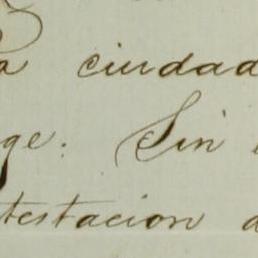 a ciudad
ge. Sin
testacion